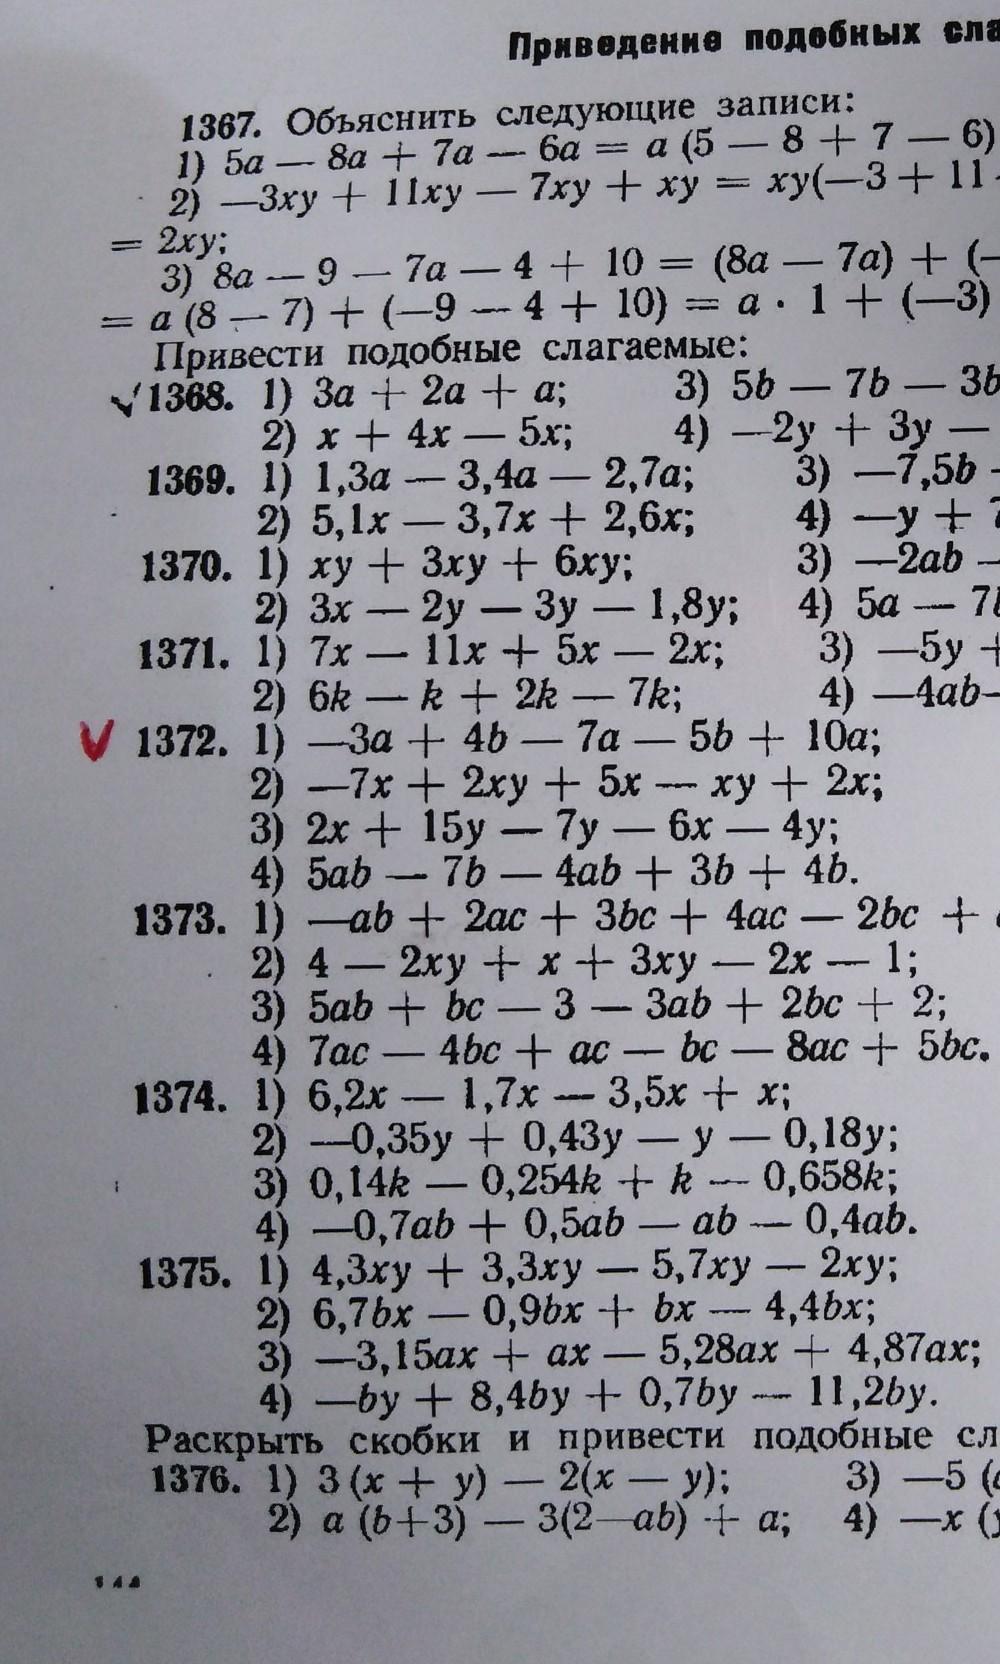 Приведение подобных сла
1367. Объяснить следующие записи:
1) 5a — 8a + 7a — 6a = a (5 — 8 + 7 — 6)
2) —3xy + 11xy — 7xy + xy = xy(—3 + 11
= 2xy;
3) 8a — 9 — 7a — 4 + 10 = (8a — 7a) + (—
= a (8 — 7) + (—9 — 4 + 10) = a · 1 + (—3)
Привести подобные слагаемые:
1368. 1) 3a + 2a + a; 3) 5b — 7b — 3b
2) x + 4x — 5x; 4) —2y + 3y —
1369. 1) 1,3a — 3,4a — 2,7a; 3) —7,5b
2) 5,1x — 3,7x + 2,6x; 4) —y + 7
1370. 1) xy + 3xy + 6xy; 3) —2ab —
2) 3x — 2y — 3y — 1,8y; 4) 5a — 7b
1371. 1) 7x — 11x + 5x — 2x; 3) —5y +
2) 6k — k + 2k — 7k; 4) —4ab—
1372. 1) —3a + 4b — 7a — 5b + 10a;
2) —7x + 2xy + 5x — xy + 2x;
3) 2x + 15y — 7y — 6x — 4y;
4) 5ab — 7b — 4ab + 3b + 4b.
1373. 1) —ab + 2ac + 3bc + 4ac — 2bc +
2) 4 — 2xy + x + 3xy — 2x — 1;
3) 5ab + bc — 3 — 3ab + 2bc + 2;
4) 7ac — 4bc + ac — bc — 8ac + 5bc.
1374. 1) 6,2x — 1,7x — 3,5x + x;
2) —0,35y + 0,43y — y — 0,18y;
3) 0,14k — 0,254k + k — 0,658k;
4) —0,7ab + 0,5ab — ab — 0,4ab.
1375. 1) 4,3xy + 3,3xy — 5,7xy — 2xy;
2) 6,7bx — 0,9bx + bx — 4,4bx;
3) —3,15ax + ax — 5,28ax + 4,87ax;
4) —by + 8,4by + 0,7by — 11,2by.
Раскрыть скобки и привести подобные сл
1376. 1) 3 (x + y) — 2(x — y); 3) —5 (
2) a (b+3) — 3(2—ab) + a; 4) —x (